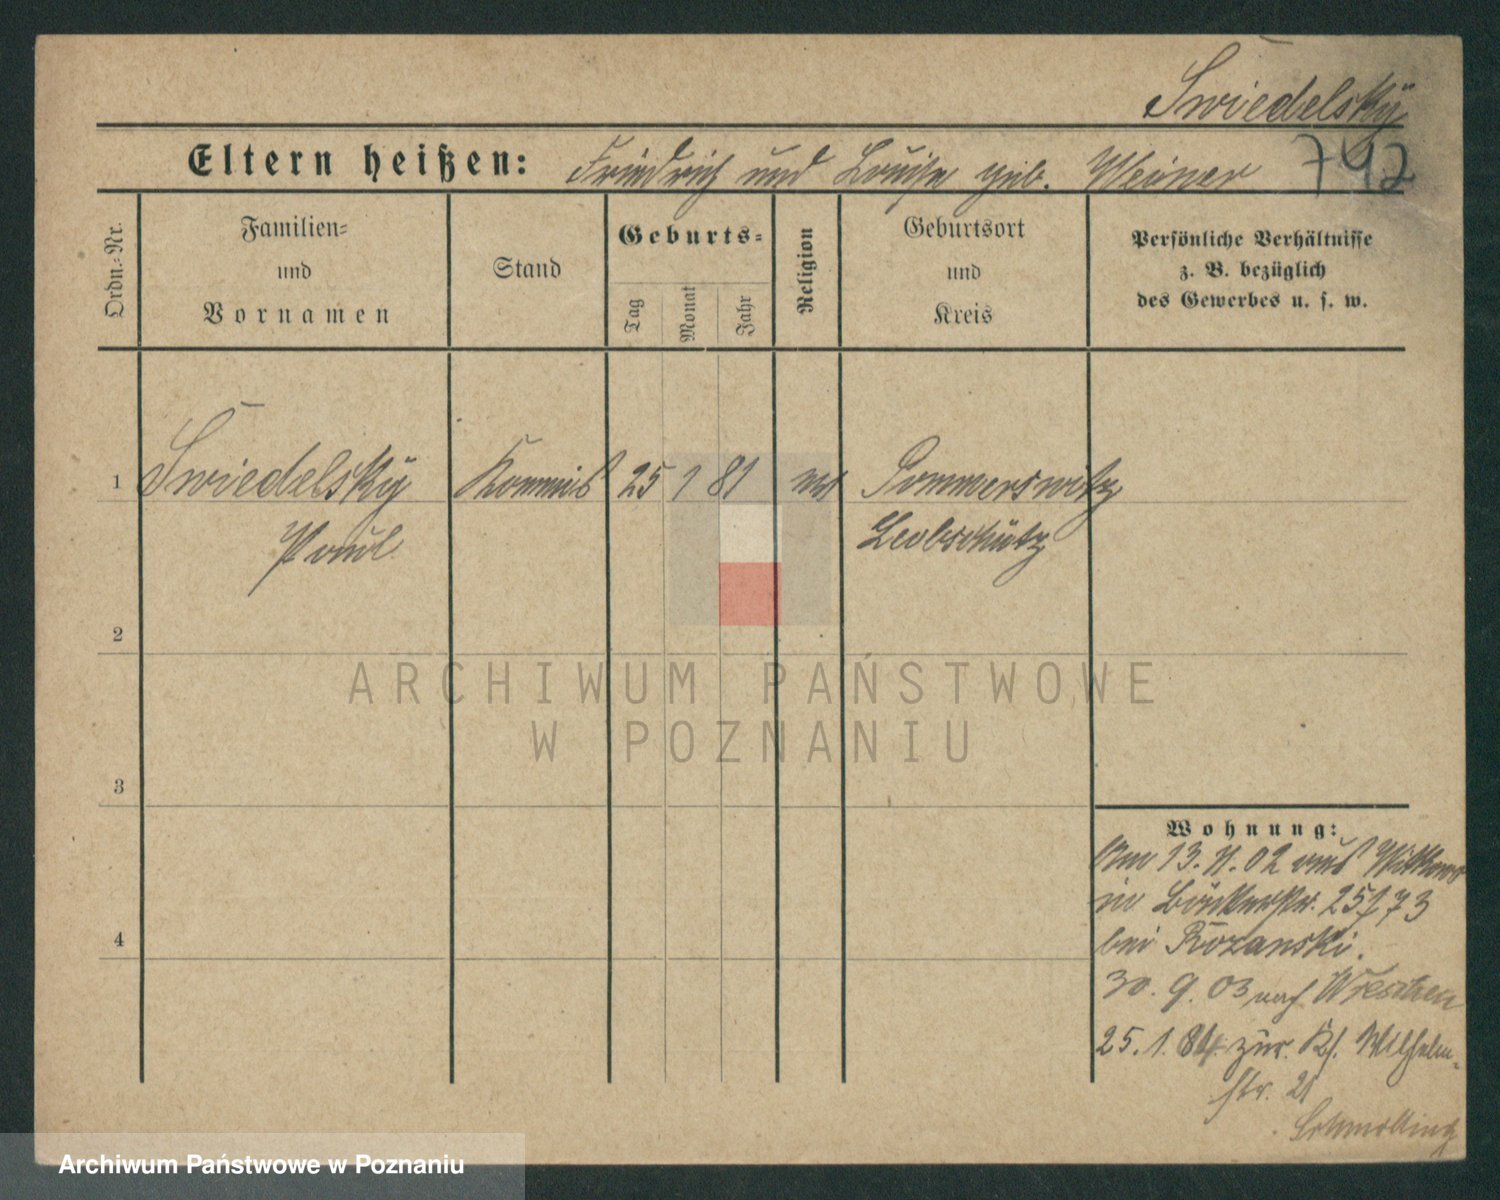 Swiedelsky
Eltern heißen: Friedrich und Louise geb. Weiner 742
Ordn.-Nr.
Familien- und Vornamen
Stand
Geburts-
Tag
Monat
Jahr
Religion
Geburtsort und Kreis
Persönliche Verhältnisse
z. B. bezüglich
des Gewerbes u. s. w.
1 Swiedelsky Kommis 25 1 81 Pommerswitz
Paul Leobschütz
2
3
4
Wohnung:
Am 13. 11. 02 aus Witkowo
in Bäckerstr. 25
bei Rozanski.
30. 9. 03 nach Wreschen
25. 1. 84 zur. Kf. Wilhelm-
str. 21
ARCHIWUM PAŃSTWOWE
W POZNANIU
Archiwum Państwowe w Poznaniu